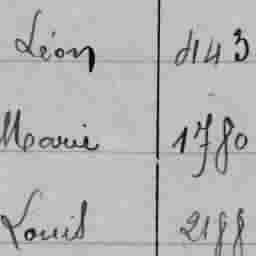 Léon 443
Marie 1780
Louis 2188